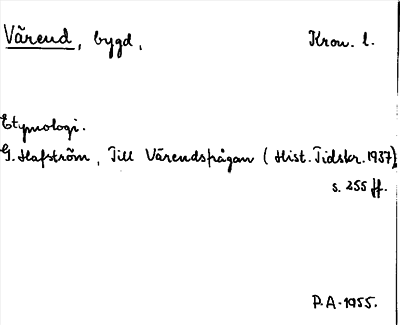 Värend, bygd, Kron. l.
Etymologi.
G. Hafström, Till Värendsfrågan (Hist. Tidskr. 1937)
s. 255 ff.
P.A. 1955.